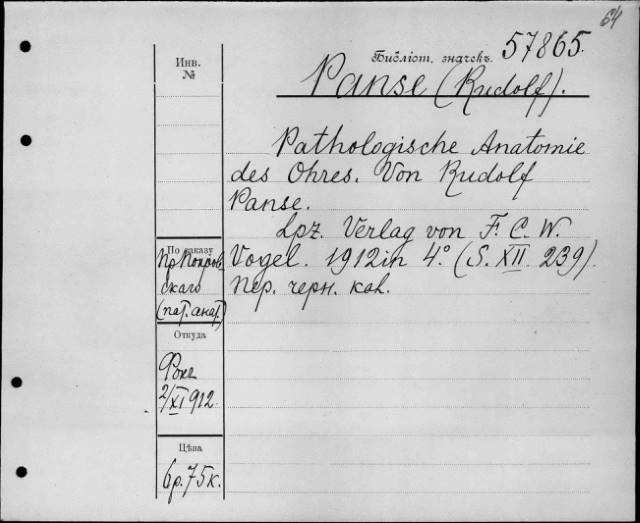 64
Инв.
№
Библіот. значекъ 57865.
Panse (Rudolf).
Pathologische Anatomie
des Ohres. Von Rudolf
Panse.
Lpz. Verlag von F. C. W.
Vogel. 1912 in 4°. (S. XII. 239).
Пер. черн. кол.
По заказу
Пр. Покров
скаго
(пат. анат.)
Откуда
2/XI 912
Цѣна
6 р. 75 к.